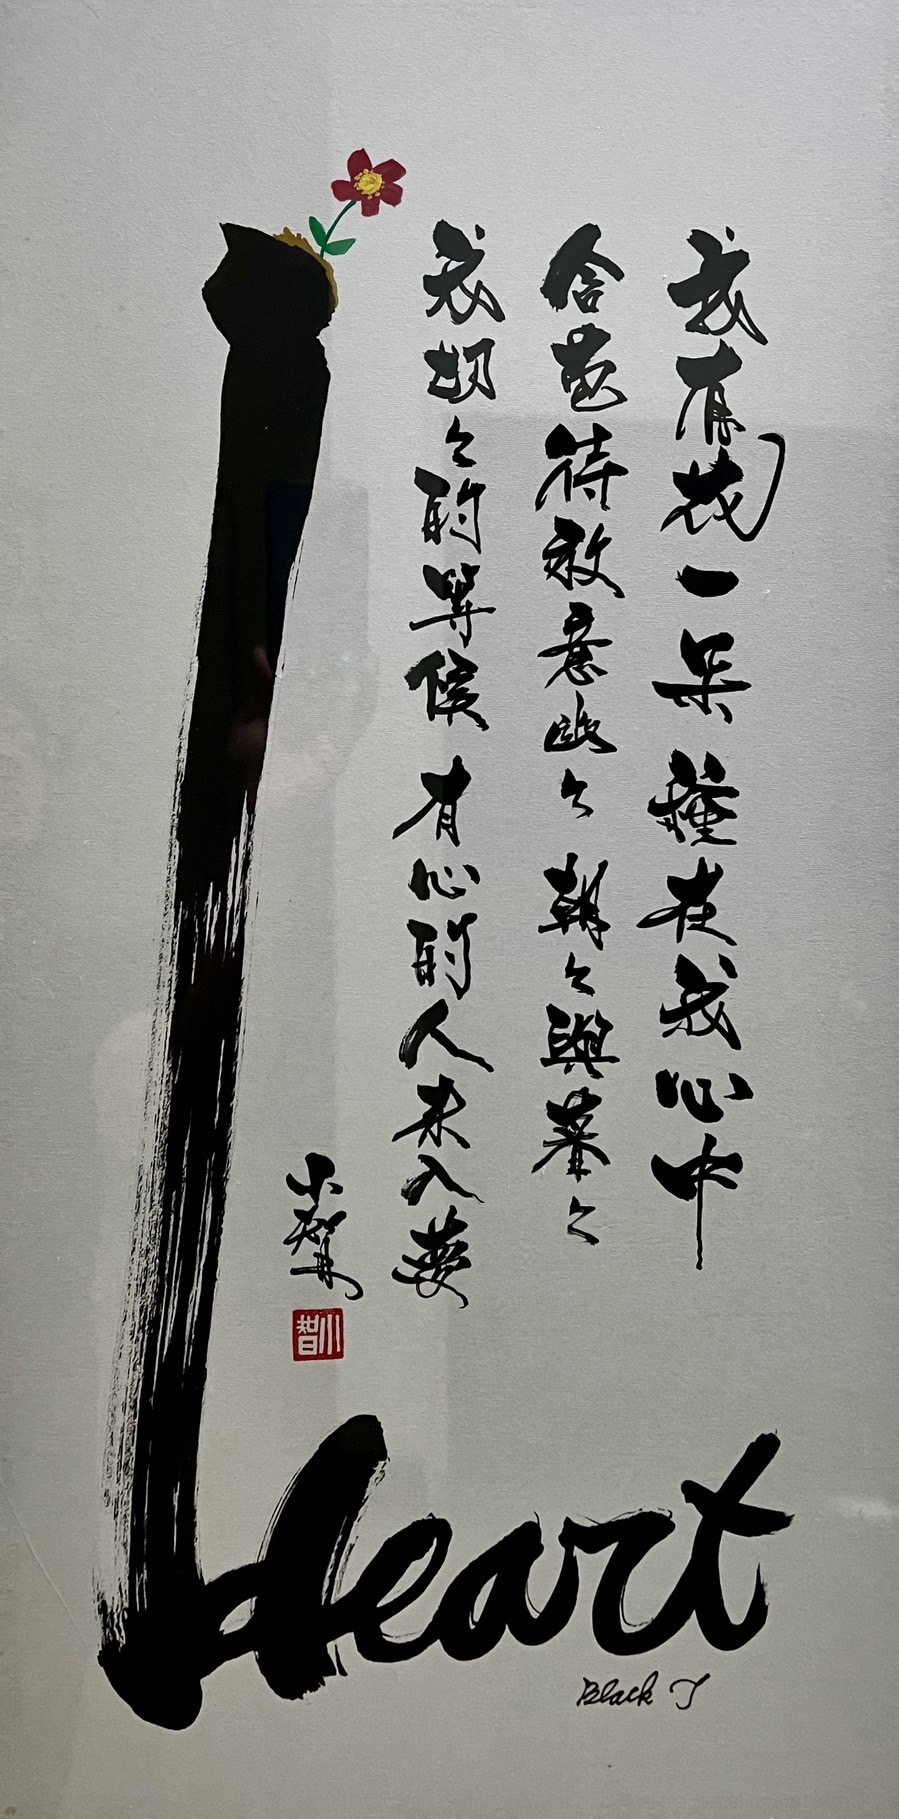 我有花一朵 種在我心中
含苞待放意幽々 朝々與暮々
我切々的等候 有心的人来入夢
小智
小智
Heart
Black T